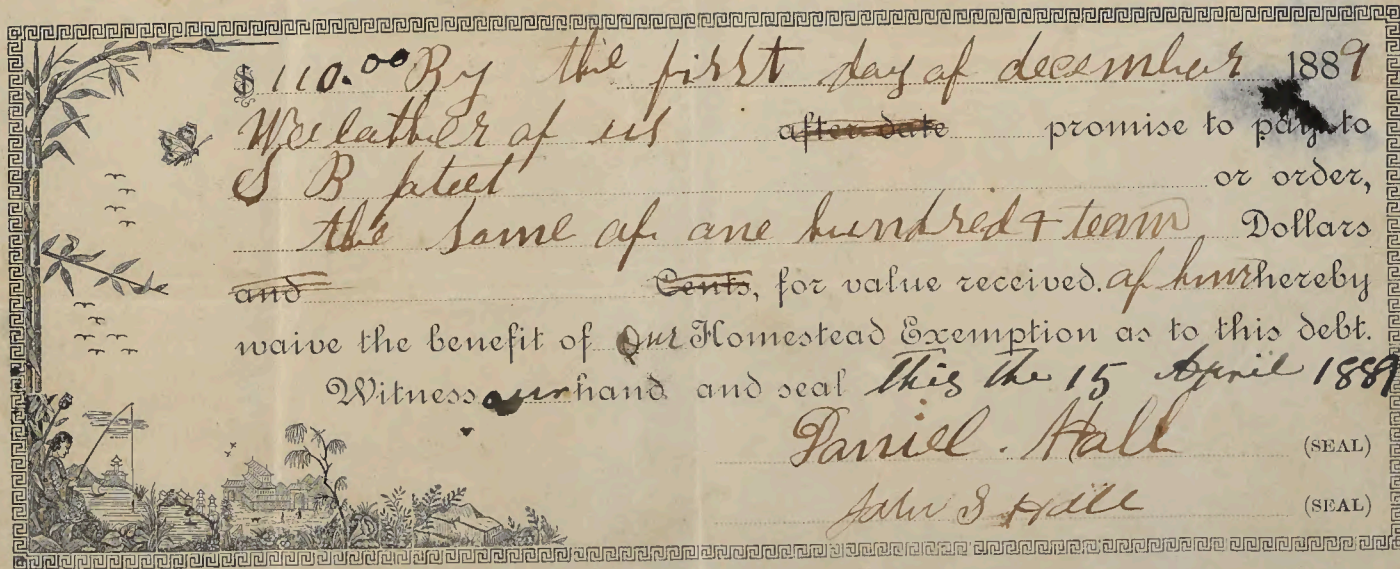 $110.00 By the first day of december 1889
We eather of us after date promise to pay to
S B or order,
the some of one hundred + team Dollars
and Cents, for value received. of him hereby
waive the benefit of our Homestead Exemption as to this debt.
Witness our hand and seal this the 15 April 1889
Daniel. Hall (SEAL)
John S Hall (SEAL)